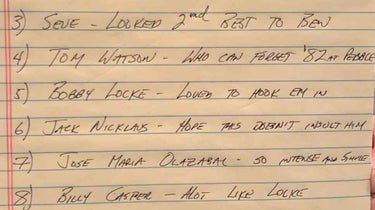 3) SEVE - LOOKED 2nd BEST TO BEN
4) TOM WATSON - WHO CAN FORGET '82 AT PEBBLE
5) BOBBY LOCKE - LOVED TO HOOK EM IN
6) JACK NICKLAUS - HOPE THIS DOESN'T INSULT HIM
7) JOSE MARIA OLAZABAL - SO INTENSE AND
8) BILLY CASPER - ALOT LIKE LOCKE